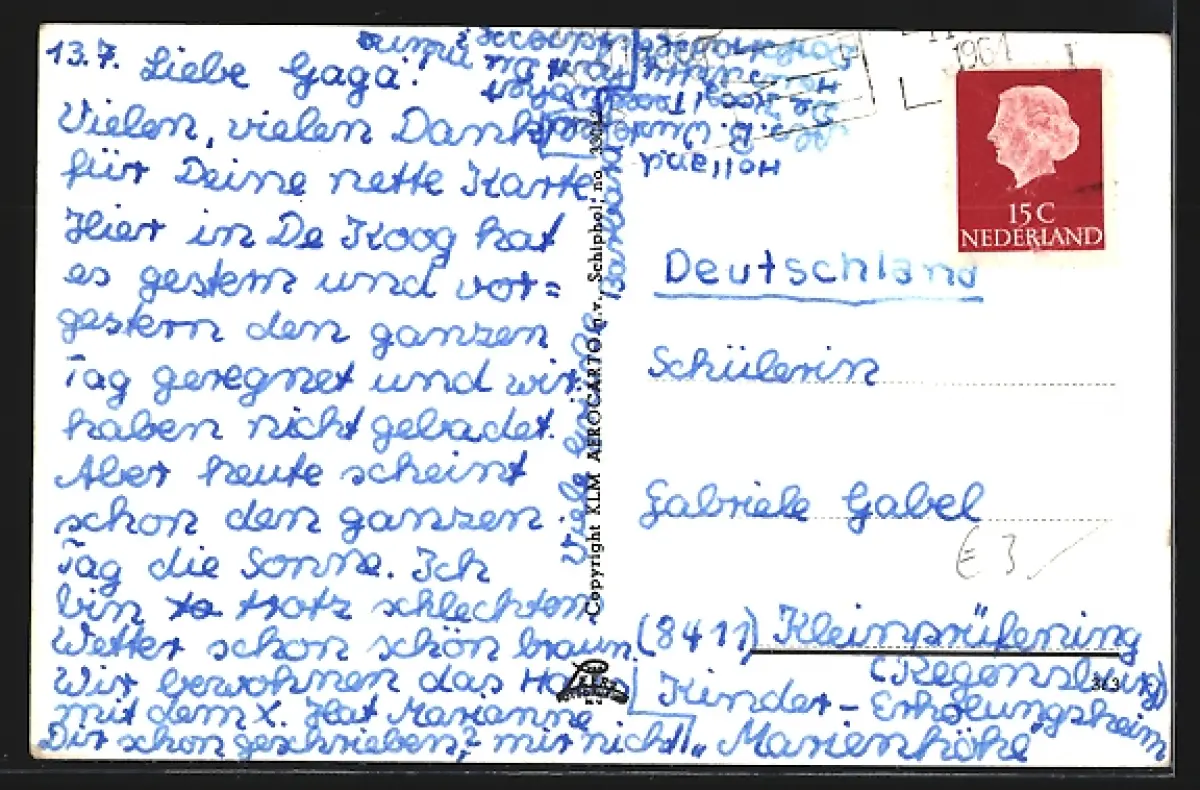 13.7. Liebe Gaga!
Vielen, vielen Dank
für Deine nette Karte.
Hier in De Koog hat
es gestern und vor=
gestern den ganzen
Tag geregnet und wir
haben nicht gebadet.
Aber heute scheint
schon den ganzen
Tag die Sonne. Ich
bin trotz schlechtem
Wetter schon schön braun.
Wir bewohnen das
mit dem X. Hat Marianne
Dir schon geschrieben? mir nicht!
Viele
Barbara
De Koog, Texel
Holland
Copyright KLM AEROCARTO n.v. Schiphol, no.
1961
15 C
NEDERLAND
Deutschland
Schülerin
Gabriele Gabel
€ 3
(8411) Kleinprüfening
(Regensburg)
313
Kinder - Erholungsheim
„Marienhöhe"